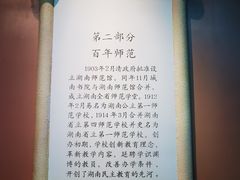 第二部分
百年师范
1903年2月清政府批准设
立湖南师范馆。同年11月城
南书院与湖南师范馆合并,
成立湖南全省师范学堂。1912
年2月易名为湖南公立第一师
范学校,1914年3月合并湖南
省立第四师范学校并更名为
湖南省立第一师范学校。创
办初期,学校创新教育理念,
革新教学内容,延聘学识渊
博的教员,改善办学条件,
开创了湖南民主教育的先河,